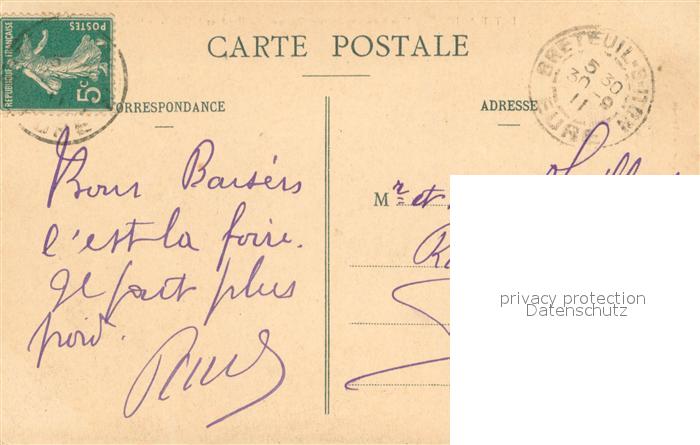 CARTE POSTALE
RÉPUBLIQUE FRANÇAISE
POSTES
5c
BRETEUIL-S-ITON
5 30
30 - 9
11
EURE
CORRESPONDANCE
ADRESSE
Bons Baisérs
c'est la foire.
Il fait plus
froid.
Mr et
privacy protection
Datenschutz